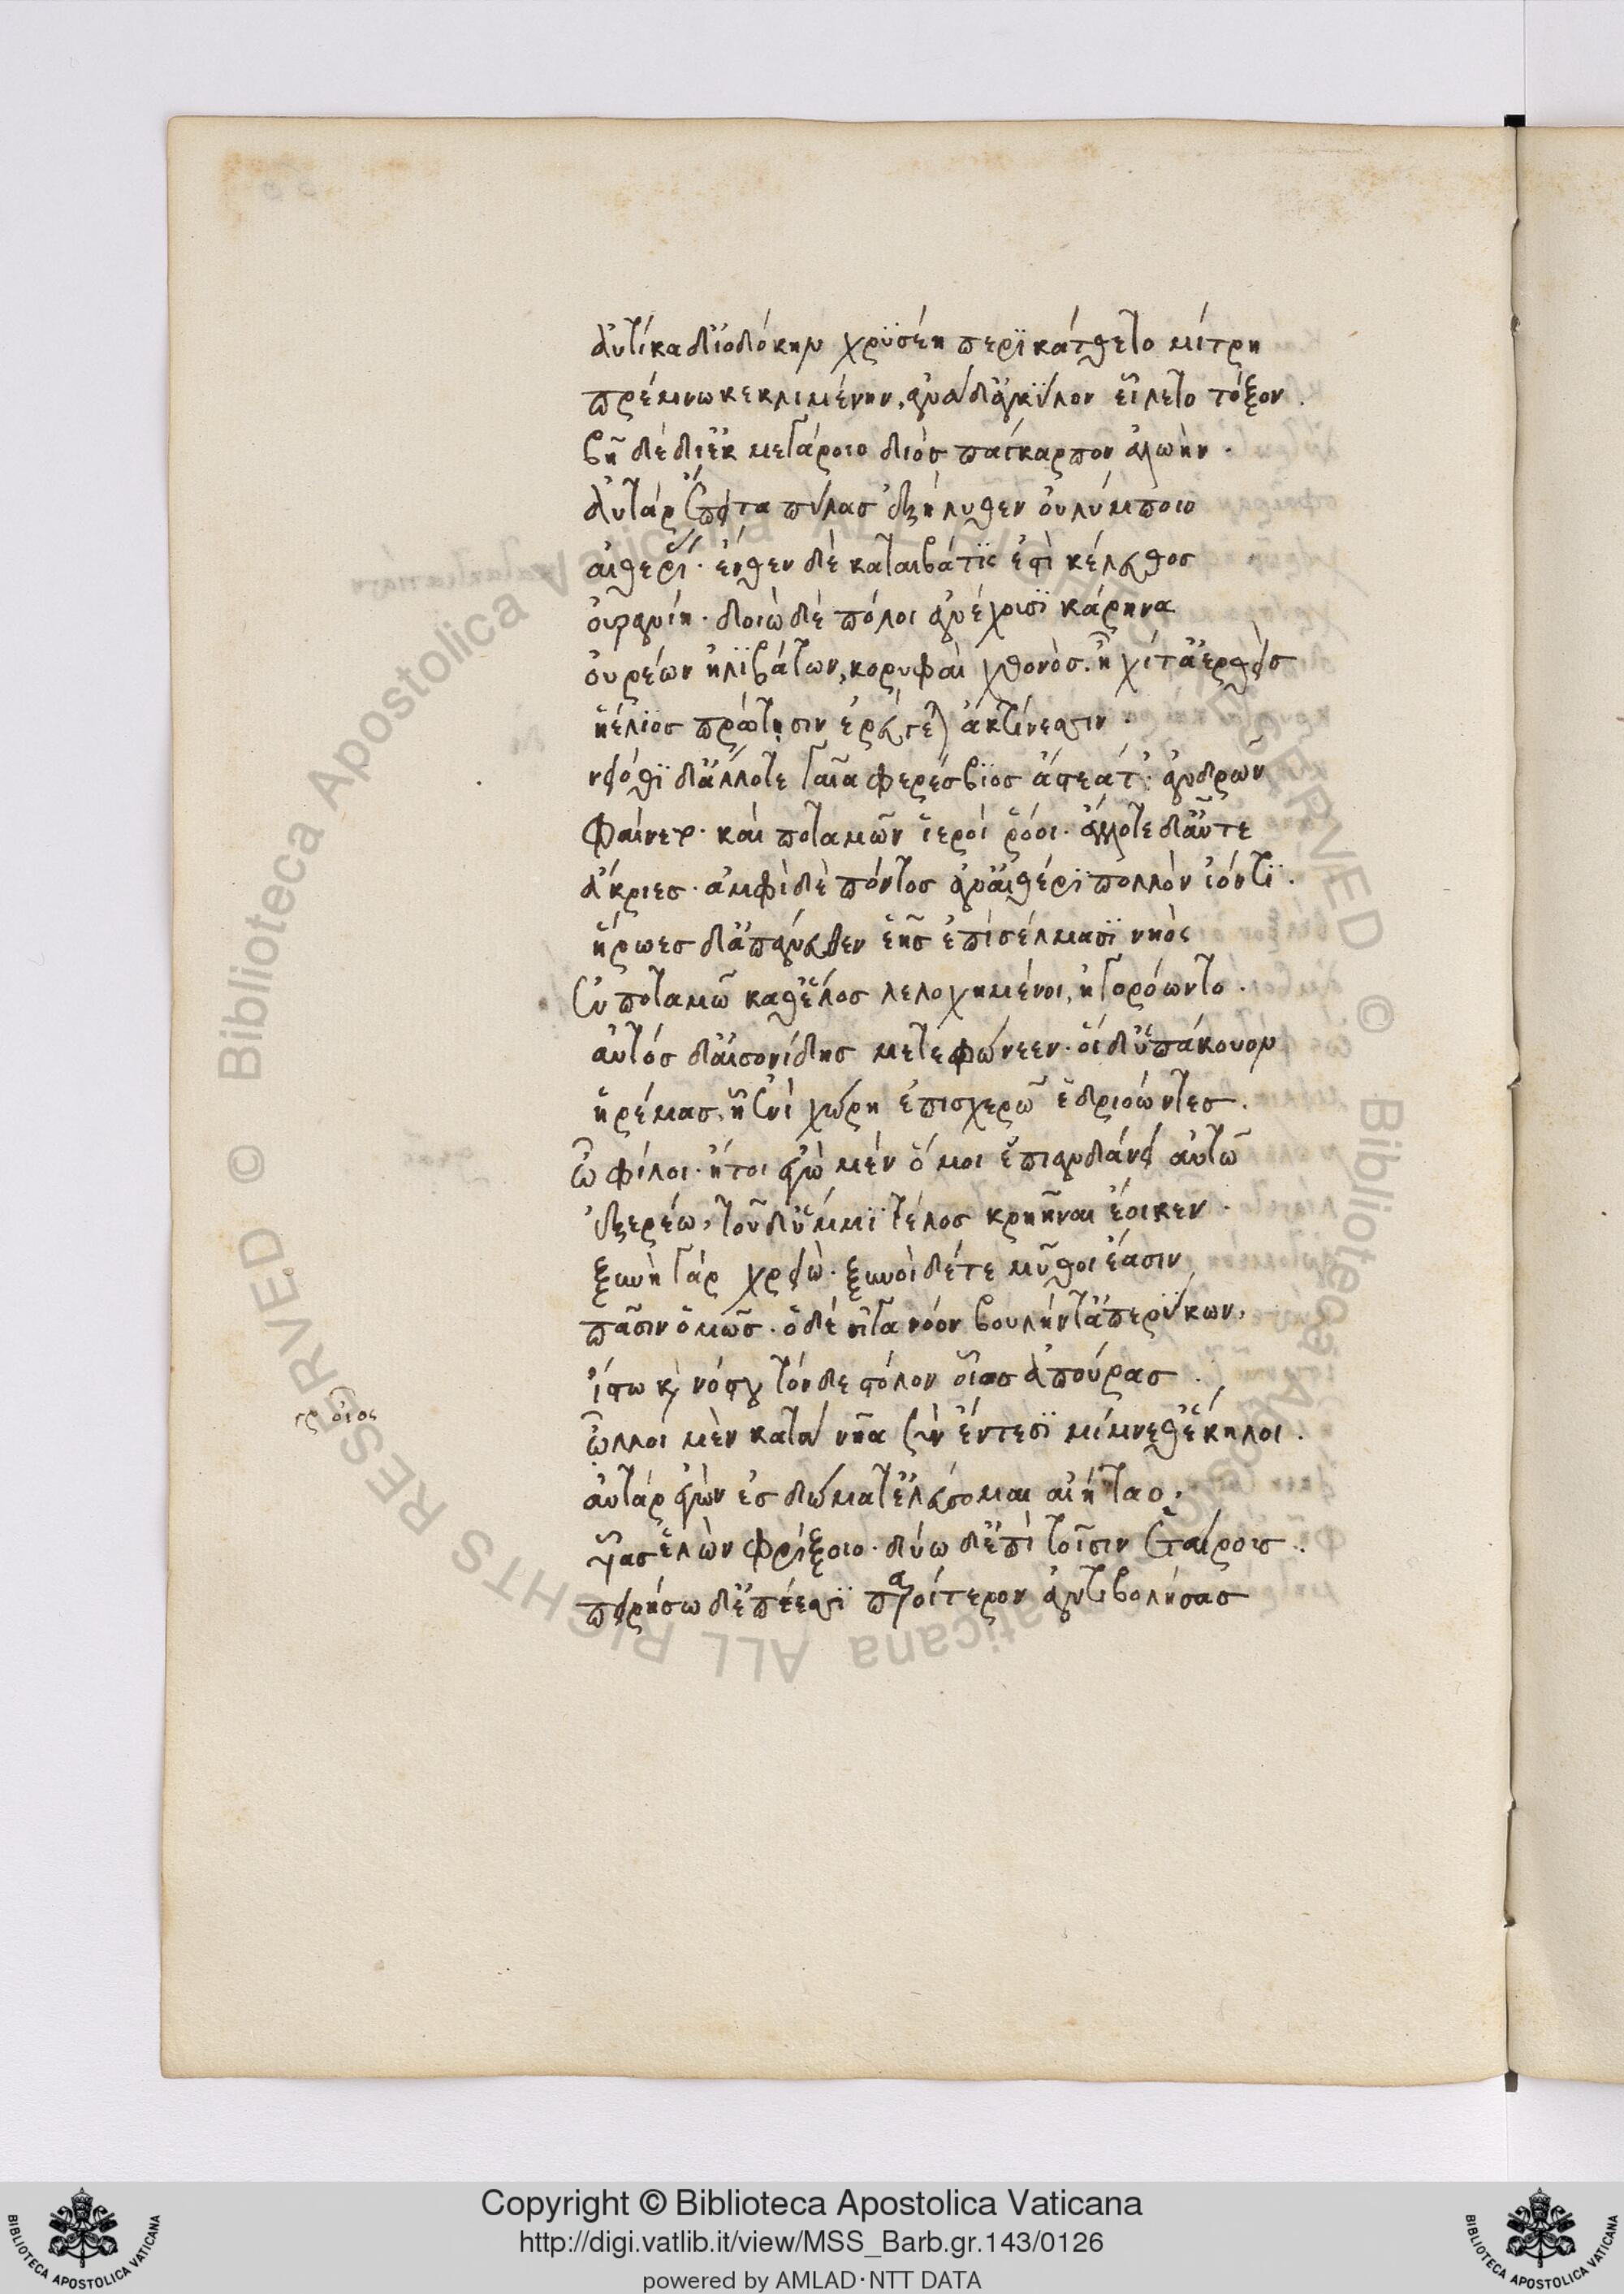 αὐτίκα δ' ἰοδόκην χρυσέη περικάτθετο μίτρη
πρέμνω κεκλιμένην, ἀνὰ δ' ἀγκύλον εἵλετο τόξον.
βῆ δὲ διὲκ μεγάροιο διὸς πάγκαρπον ἀλωὴν.
αὐτὰρ ἔπειτα πύλας ἐξήλυθεν ὀυλύμποιο
αἰθερί· ἔνθεν δὲ καταιβάτις ἐστὶ κέλευθος
οὐρανίη· δοιὼ δὲ πόλοι ἀνέχουσι κάρηνα
ὀυρέων ἠλιβάτων, κορυφαὶ χθονὸς. ἧχί τ' ἀερθεὶς
ἠέλιος πρώτησιν ἐρεύγεται ἀκτίνεσσιν.
νειόθι δ' ἄλλοτε γαῖα φερέσβιος ἄστεά τ' ἀνδρῶν
φαίνετο· καὶ ποταμῶν ἱεροὶ ῥόοι· ἄλλοτε δ' αὖτε
ἄκριες· ἀμφὶ δὲ πόντος ἀν' αἰθέρι πολλὸν ἰόντι.
ἥρωες δ' ἀπάνευθεν ἑῆς ἐπὶ σέλμασι νηὸς
ἐν ποταμῶ καθ' ἕλος λελοχημένοι, ἠγορόωντο.
αὐτὸς δ' αἰσονίδης μετεφώνεεν· οἱ δ' ὑπάκουον
ἠρέμας, ἧ ἐνὶ χώρη ἐπισχερῶ ἑδριόωντες.
ὦ φίλοι· ἤτοι ἐγὼ μὲν ὅ μοι ἐπιανδάνει αὐτῶ
ἐξερέω, τοῦ δ' ὔμμι τέλος κρηῆναι ἔοικεν.
ξυνὴ γὰρ χρειὼ· ξυνοὶ δέ τε μῦθοι ἔασιν
πᾶσιν ὁμῶς· ὁ δὲ σῖγα νόον βουλήν τ' ἀπερύκων,
ἴστω καὶ νόστου τόνδε στόλον οἶας ἀπούρας.
γρ οἶος
ὧλλοι μὲν κατὰ νῆα σὺν ἔντεσι μίμνεθ' ἕκηλοι.
αὐτὰρ ἐγὼν ἐς δώματ' ἐλεύσομαι αἰήταο,
υἷας ἑλὼν φρίξοιο· δύω δ' ἐπὶ τοῖσιν ἑταίρους.
πειρήσω δ' ἐπέεσσι παροίτερον ἀντιβολήσας
Copyright © Biblioteca Apostolica Vaticana
http://digi.vatlib.it/view/MSS_Barb.gr.143/0126
powered by AMLAD·NTT DATA